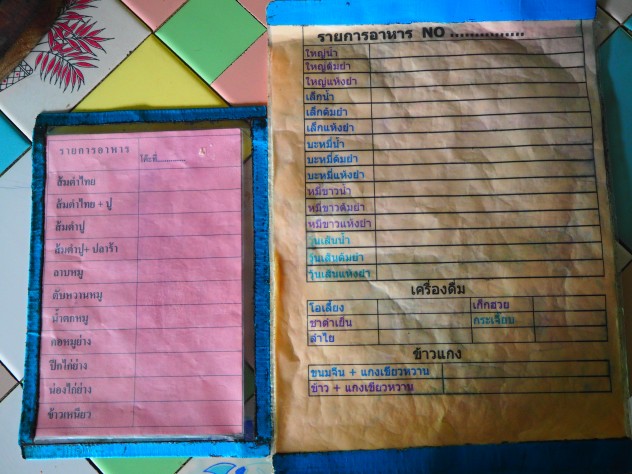 รายการอาหาร
โต๊ะที่.............
ส้มตำไทย
ส้มตำไทย + ปู
ส้มตำปู
ส้มตำปู+ ปลาร้า
ลาบหมู
ตับหวานหมู
น้ำตกหมู
คอหมูย่าง
ปีกไก่ย่าง
น่องไก่ย่าง
ข้าวเหนียว
รายการอาหาร NO ................
ใหญ่น้ำ
ใหญ่ต้มยำ
ใหญ่แห้งยำ
เล็กน้ำ
เล็กต้มยำ
เล็กแห้งยำ
บะหมี่น้ำ
บะหมี่ต้มยำ
บะหมี่แห้งยำ
หมี่ขาวน้ำ
หมี่ขาวต้มยำ
หมี่ขาวแห้งยำ
วุ้นเส้นน้ำ
วุ้นเส้นต้มยำ
วุ้นเส้นแห้งยำ
เครื่องดื่ม
โอเลี้ยง เก๊กฮวย
ชาดำเย็น กระเจี๊ยบ
ลำไย
ข้าวแกง
ขนมจีน + แกงเขียวหวาน
ข้าว + แกงเขียวหวาน